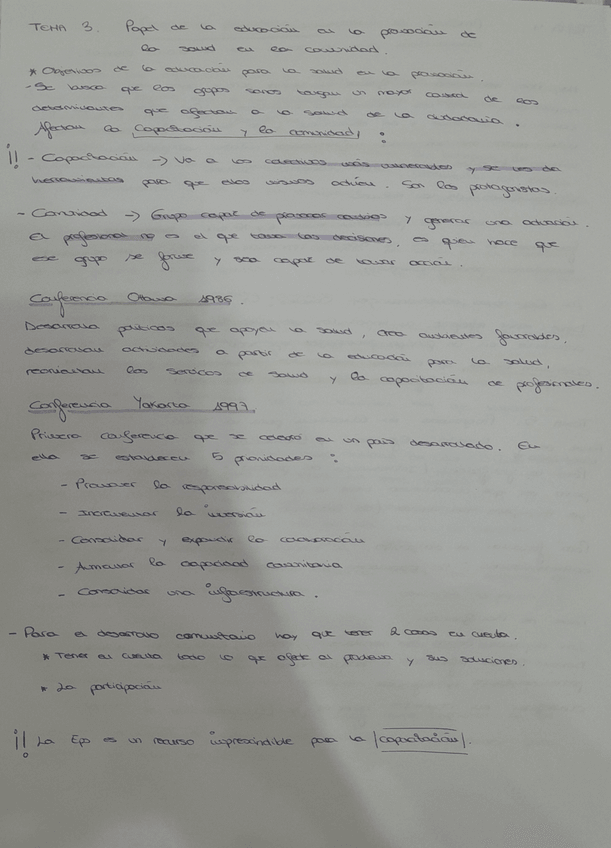 TEMA 3. Papel de la educación en la promoción de
la salud en la comunidad.
* Objetivos de la educación para la salud en la promoción.
- Se busca que los grupos sanos tengan un mayor control de los
determinantes que afectan a la salud de la ciudadanía.
Afectan la capacitación y la comunidad, :
¡! - Capacitación -> Va a los colectivos más vulnerables y se les da
herramientas para que ellos mismos actúen. Son los protagonistas.
- Comunidad -> Grupo capaz de promover cambios y generar una actuación.
El profesional no es el que toma las decisiones, es quien hace que
ese grupo se forme y sea capaz de tomar acción.
Conferencia Otawa 1986.
Desarrolla políticas que apoyen la salud, crea ambientes favorables,
desarrollan actividades a partir de la educación para la salud,
reorientan los servicios de salud y la capacitación de profesionales.
Conferencia Yakarta 1997
Primera conferencia que se celebró en un país desarrollado. En
ella se establecen 5 prioridades :
- Promover la responsabilidad
- Incrementar la inversión
- Consolidar y expandir la colaboración
- Aumentar la capacidad comunitaria
- Consolidar una infraestructura.
- Para el desarrollo comunitario hay que tener 2 cosas en cuenta.
* Tener en cuenta todo lo que afecte al problema y sus soluciones.
* La participación
¡! La Eps es un recurso imprescindible para la |capacitación|.